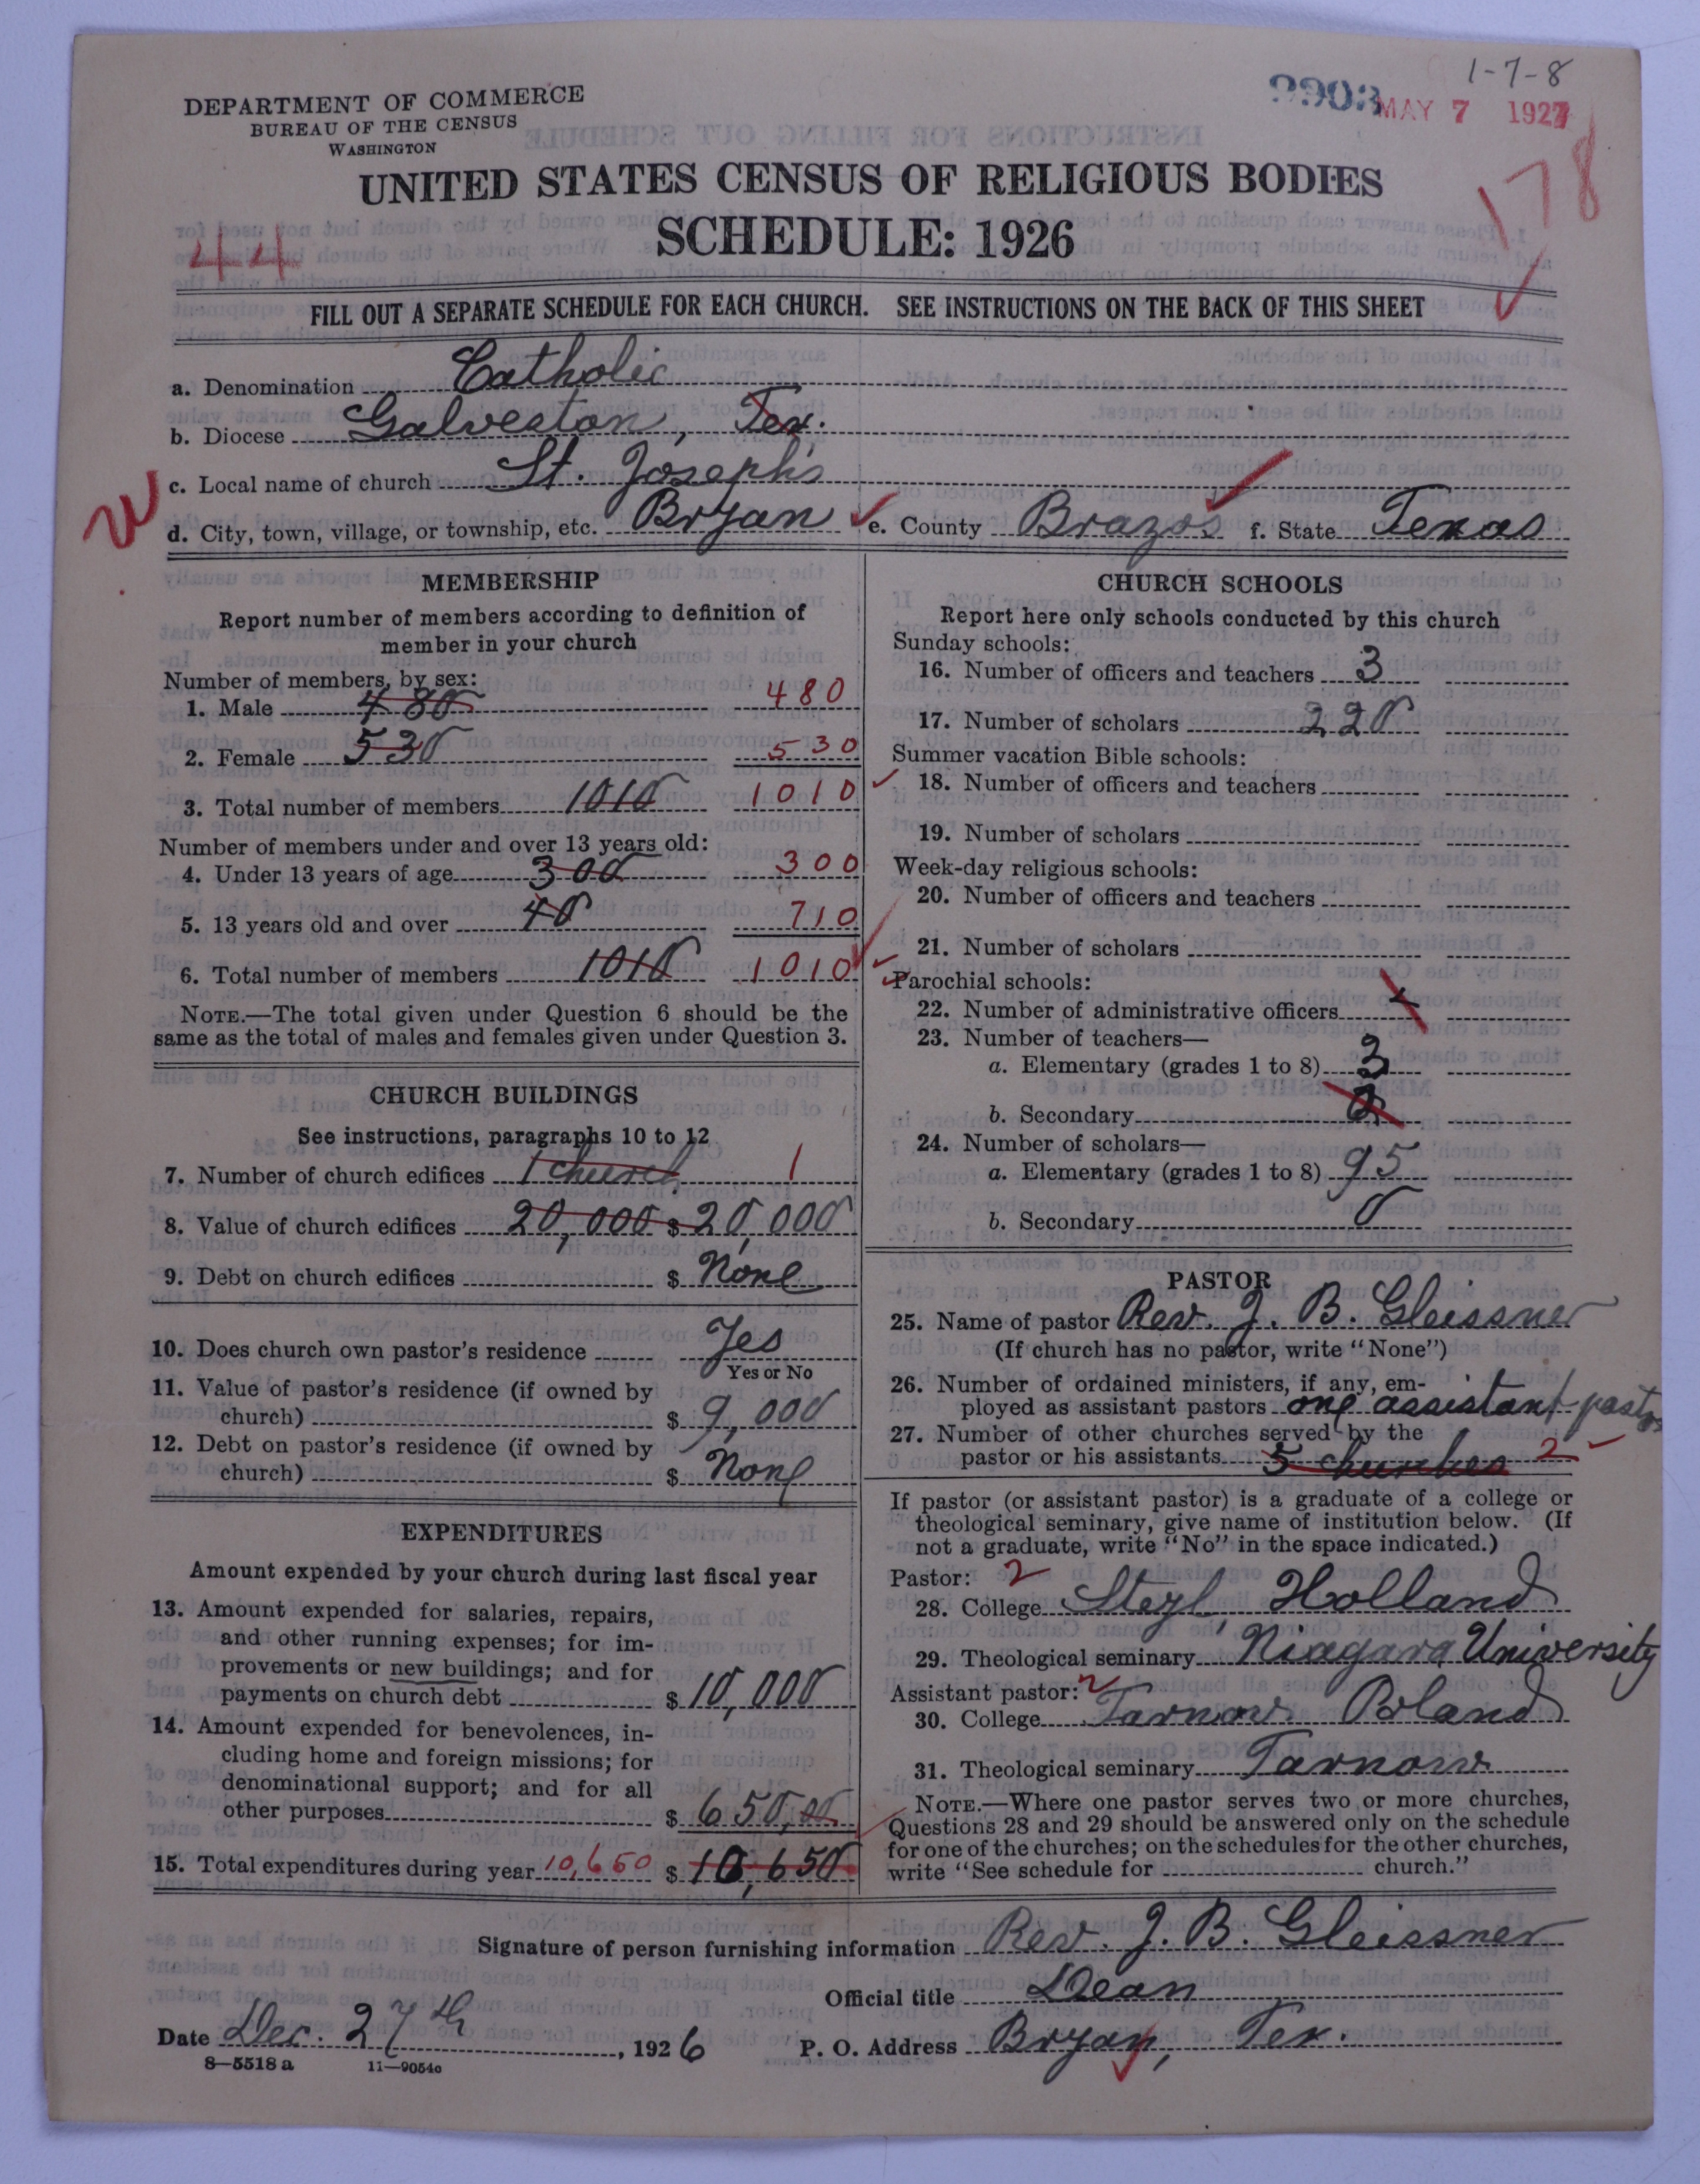 1-7-8
DEPARTMENT OF COMMERCE
BUREAU OF THE CENSUS
WASHINGTON
MAY 7 1927
178
UNITED STATES CENSUS OF RELIGIOUS BODIES
SCHEDULE: 1926
44
FILL OUT A SEPARATE SCHEDULE FOR EACH CHURCH. SEE INSTRUCTIONS ON THE BACK OF THIS SHEET
a. Denomination Catholic
b. Diocese Galveston, Tex.
c. Local name of church St. Joseph's
d. City, town, village, or township, etc. Bryan e. County Brazos f. State Texas
MEMBERSHIP
Report number of members according to definition of
member in your church
Number of members, by sex:
1. Male 480 480
2. Female 530 530
3. Total number of members 1010 1010
Number of members under and over 13 years old:
4. Under 13 years of age 300 300
5. 13 years old and over 40 710
6. Total number of members 1010 1010
NOTE.—The total given under Question 6 should be the
same as the total of males and females given under Question 3.
CHURCH BUILDINGS
See instructions, paragraphs 10 to 12
7. Number of church edifices 1 church 1
8. Value of church edifices 20,000 $ 20,000
9. Debt on church edifices $ None
10. Does church own pastor's residence Yes
Yes or No
11. Value of pastor's residence (if owned by
church) $ 9,000
12. Debt on pastor's residence (if owned by
church) $ None
EXPENDITURES
Amount expended by your church during last fiscal year
13. Amount expended for salaries, repairs,
and other running expenses; for im-
provements or new buildings; and for
payments on church debt $ 10,000
14. Amount expended for benevolences, in-
cluding home and foreign missions; for
denominational support; and for all
other purposes $ 650,00
15. Total expenditures during year 10,650 $ 10,650
CHURCH SCHOOLS
Report here only schools conducted by this church
Sunday schools:
16. Number of officers and teachers 3
17. Number of scholars 220
Summer vacation Bible schools:
18. Number of officers and teachers
19. Number of scholars
Week-day religious schools:
20. Number of officers and teachers
21. Number of scholars
Parochial schools:
22. Number of administrative officers
23. Number of teachers—
a. Elementary (grades 1 to 8) 3
b. Secondary
24. Number of scholars—
a. Elementary (grades 1 to 8) 95
b. Secondary 0
PASTOR
25. Name of pastor Rev. J. B. Gleissner
(If church has no pastor, write "None")
26. Number of ordained ministers, if any, em-
ployed as assistant pastors one assistant pastor
27. Number of other churches served by the
pastor or his assistants 5 churches 2
If pastor (or assistant pastor) is a graduate of a college or
theological seminary, give name of institution below. (If
not a graduate, write "No" in the space indicated.)
Pastor: 2
28. College Steyl, Holland
29. Theological seminary Niagara University
Assistant pastor: 2
30. College Tarnow Poland
31. Theological seminary Tarnow
NOTE.—Where one pastor serves two or more churches,
Questions 28 and 29 should be answered only on the schedule
for one of the churches; on the schedules for the other churches,
write "See schedule for church."
Signature of person furnishing information Rev. J. B. Gleissner
Official title Dean
Date Dec. 27th, 1926 P. O. Address Bryan, Tex.
8—5518 a 11—9054c